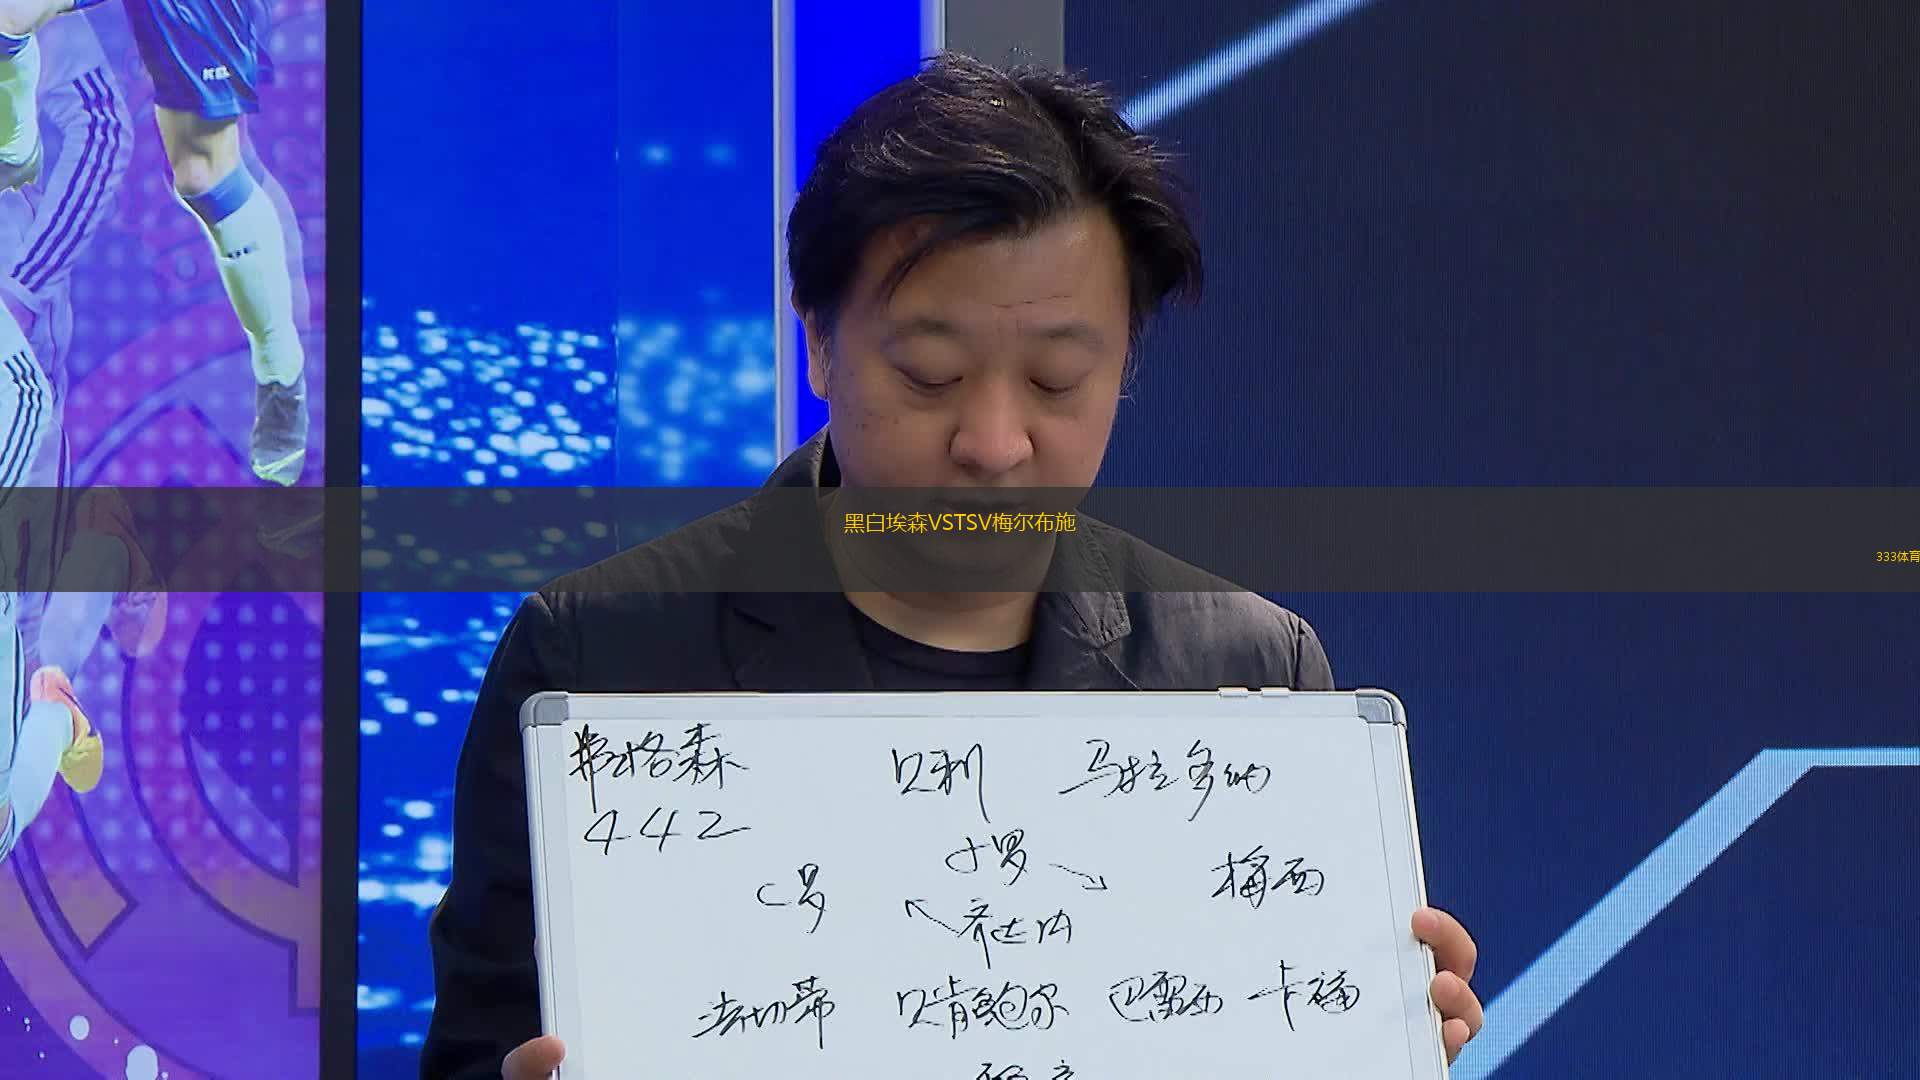 黑白埃森VSTSV梅尔布施
333体育
弗格森 贝利 马拉多纳
442
小罗
C罗 梅西
齐达内
法切蒂 贝肯鲍尔 巴雷西 卡福